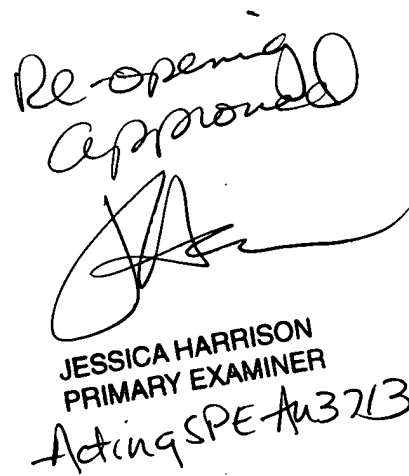 Re-opening
approved
JESSICA HARRISON
PRIMARY EXAMINER
Acting SPE Au3713